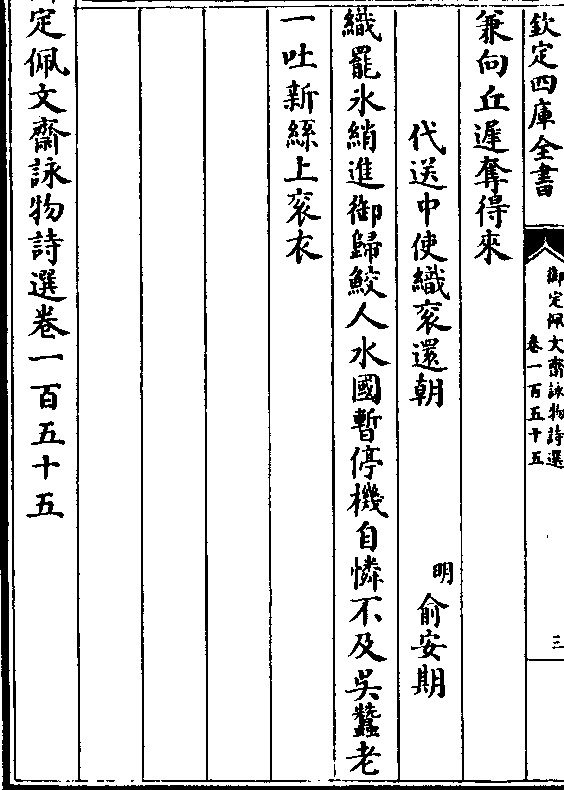 欽定四庫全書
御定佩文齋詠物詩選
卷一百五十五
三
兼向丘遲奪得來
代送中使織衮還朝
明 俞安期
織罷氷綃進御歸鮫人水國暫停機自憐不及吳蠶老
一吐新絲上衮衣
御定佩文齋詠物詩選卷一百五十五